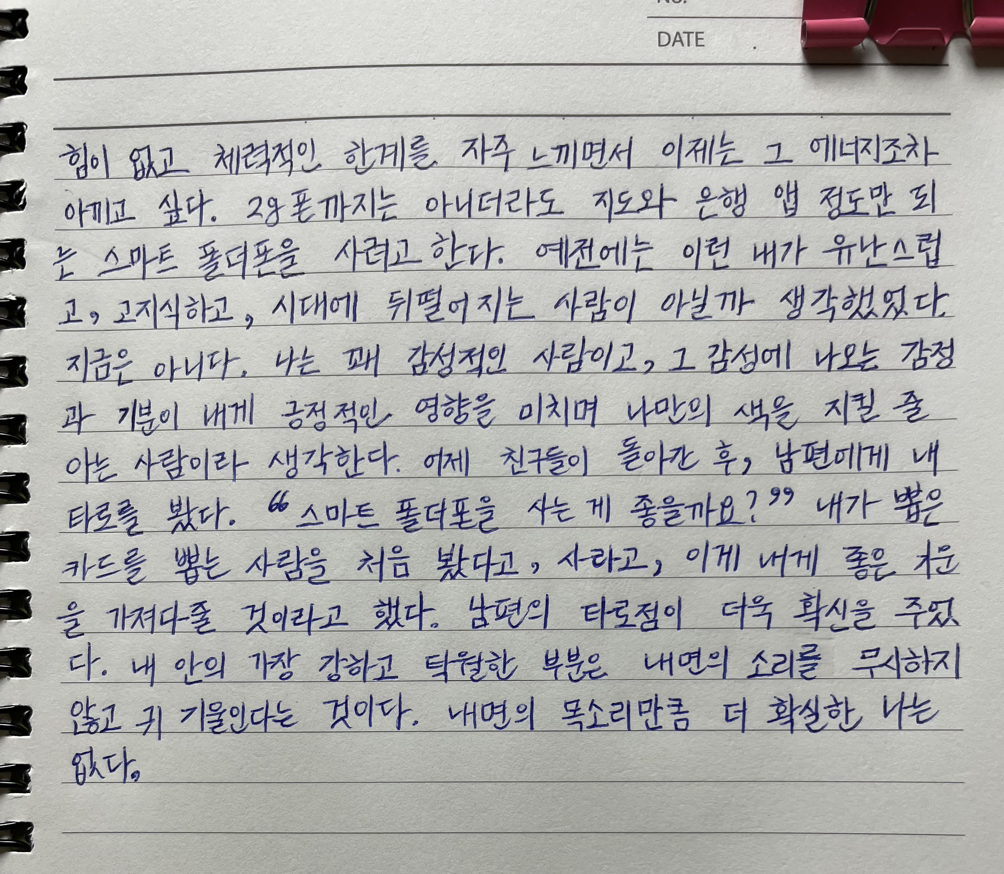 No.
DATE .
힘이 없고 체력적인 한계를 자주 느끼면서 이제는 그 에너지조차
아끼고 싶다. 2g폰까지는 아니더라도 지도와 은행 앱 정도만 되
는 스마트 폴더폰을 사려고 한다. 예전에는 이런 내가 유난스럽
고, 고지식하고, 시대에 뒤떨어지는 사람이 아닐까 생각했었다.
지금은 아니다. 나는 꽤 감성적인 사람이고, 그 감성에 나오는 감정
과 기분이 내게 긍정적인 영향을 미치며 나만의 색을 지킬 줄
아는 사람이라 생각한다. 어제 친구들이 돌아간 후, 남편에게 내
타로를 봤다. “스마트 폴더포을 사는 게 좋을까요?” 내가 뽑은
카드를 뽑는 사람을 처음 봤다고, 사라고, 이게 내게 좋은 기운
을 가져다줄 것이라고 했다. 남편의 타로점이 더욱 확신을 주었
다. 내 안의 가장 강하고 탁월한 부분은 내면의 소리를 무시하지
않고 귀 기울인다는 것이다. 내면의 목소리만큼 더 확실한 나는
없다.